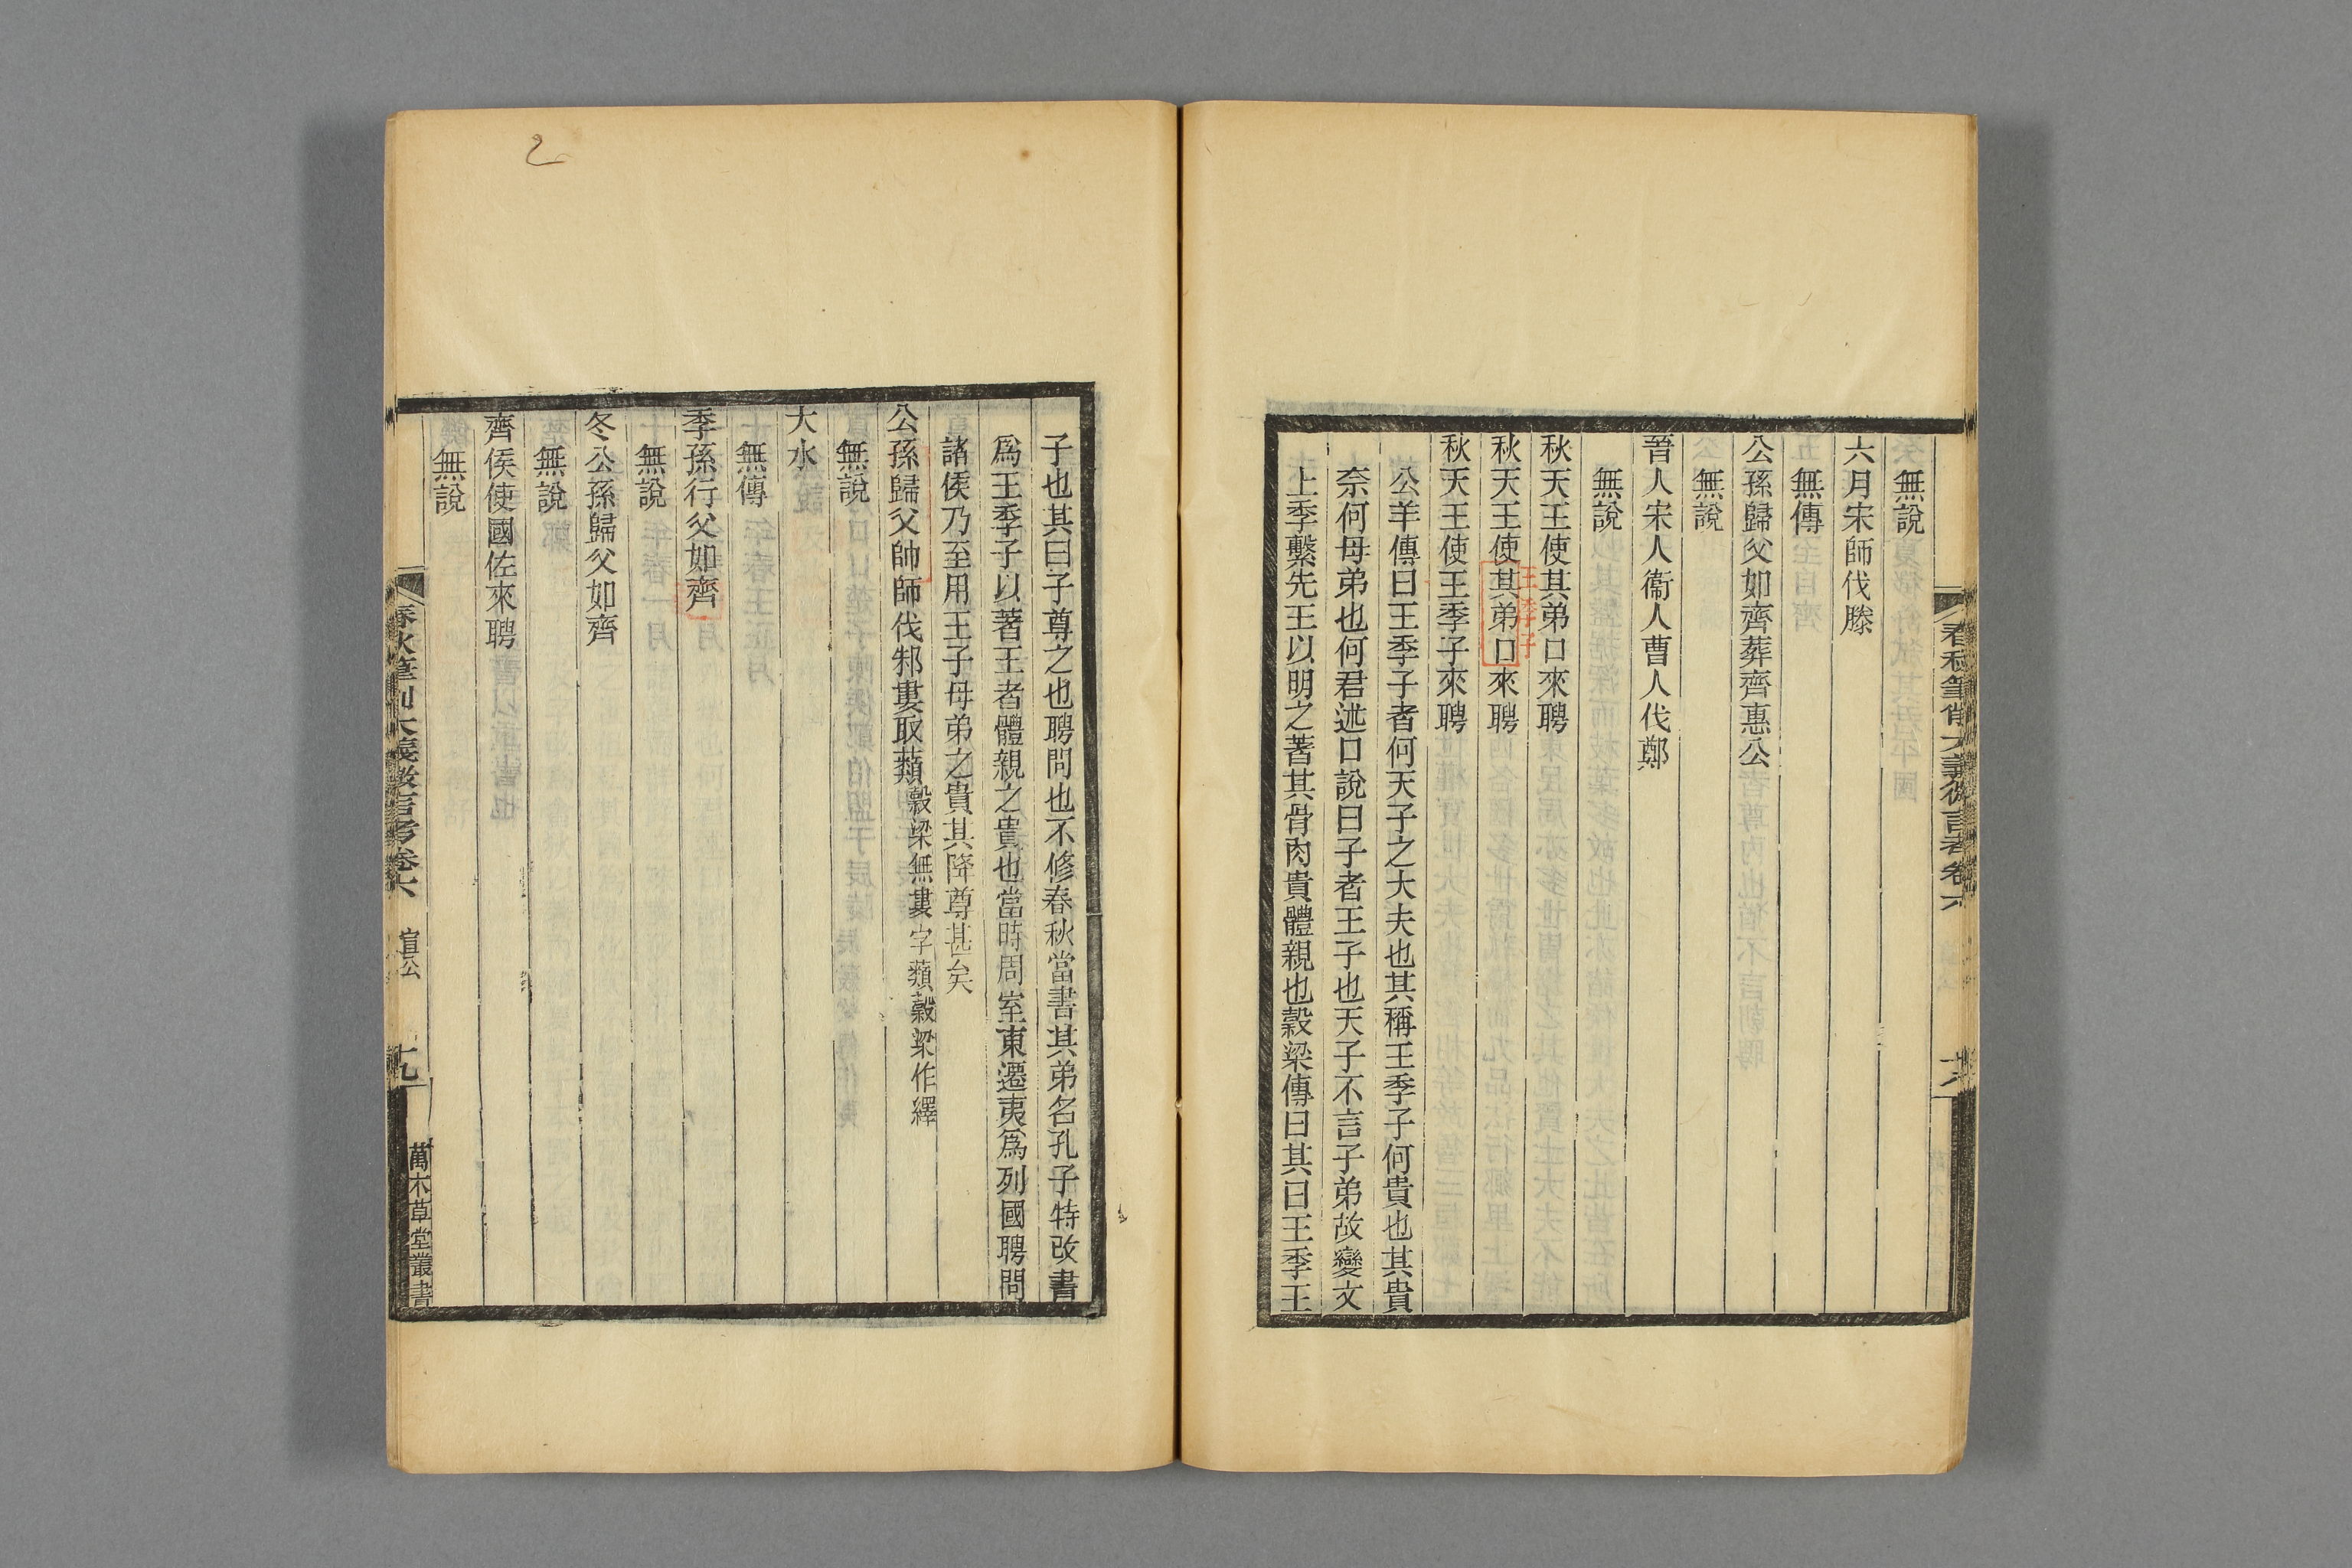 無說
六月宋師伐滕
無傳
公孫歸父如齊葬齊惠公
無說
晉人宋人衞人曹人伐鄭
無說
秋天王使其弟口來聘
秋天王使其弟口來聘
王季子
秋天王使王季子來聘
公羊傳曰王季子者何天子之大夫也其稱王季子何貴也其貴
奈何母弟也何君述口說曰子者王子也天子不言子弟故變文
上季繫先王以明之著其骨肉貴體親也穀梁傳曰其曰王季王
春秋筆削大義微言考卷六
子也其曰子尊之也聘問也不修春秋當書其弟名孔子特改書
爲王季子以著王者體親之貴也當時周室東遷夷爲列國聘問
諸侯乃至用王子母弟之貴其降尊甚矣
公孫歸父帥師伐邾婁取蘱穀梁無婁字蘱穀梁作繹
無說
大水
無傳
季孫行父如齊
無說
冬公孫歸父如齊
無說
齊侯使國佐來聘
無說
春秋筆削大義微言考卷六 宣公 十九 萬木草堂叢書